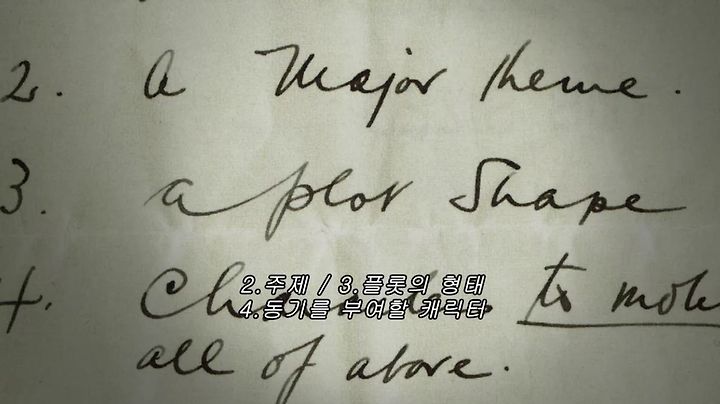 2. A Major theme.
3. a plot shape
4. to
all of above.
2.주제 / 3.플롯의 형태
4.동기를 부여할 캐릭터